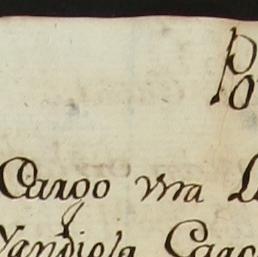 Po
Cargo vra
Yandiola Carg